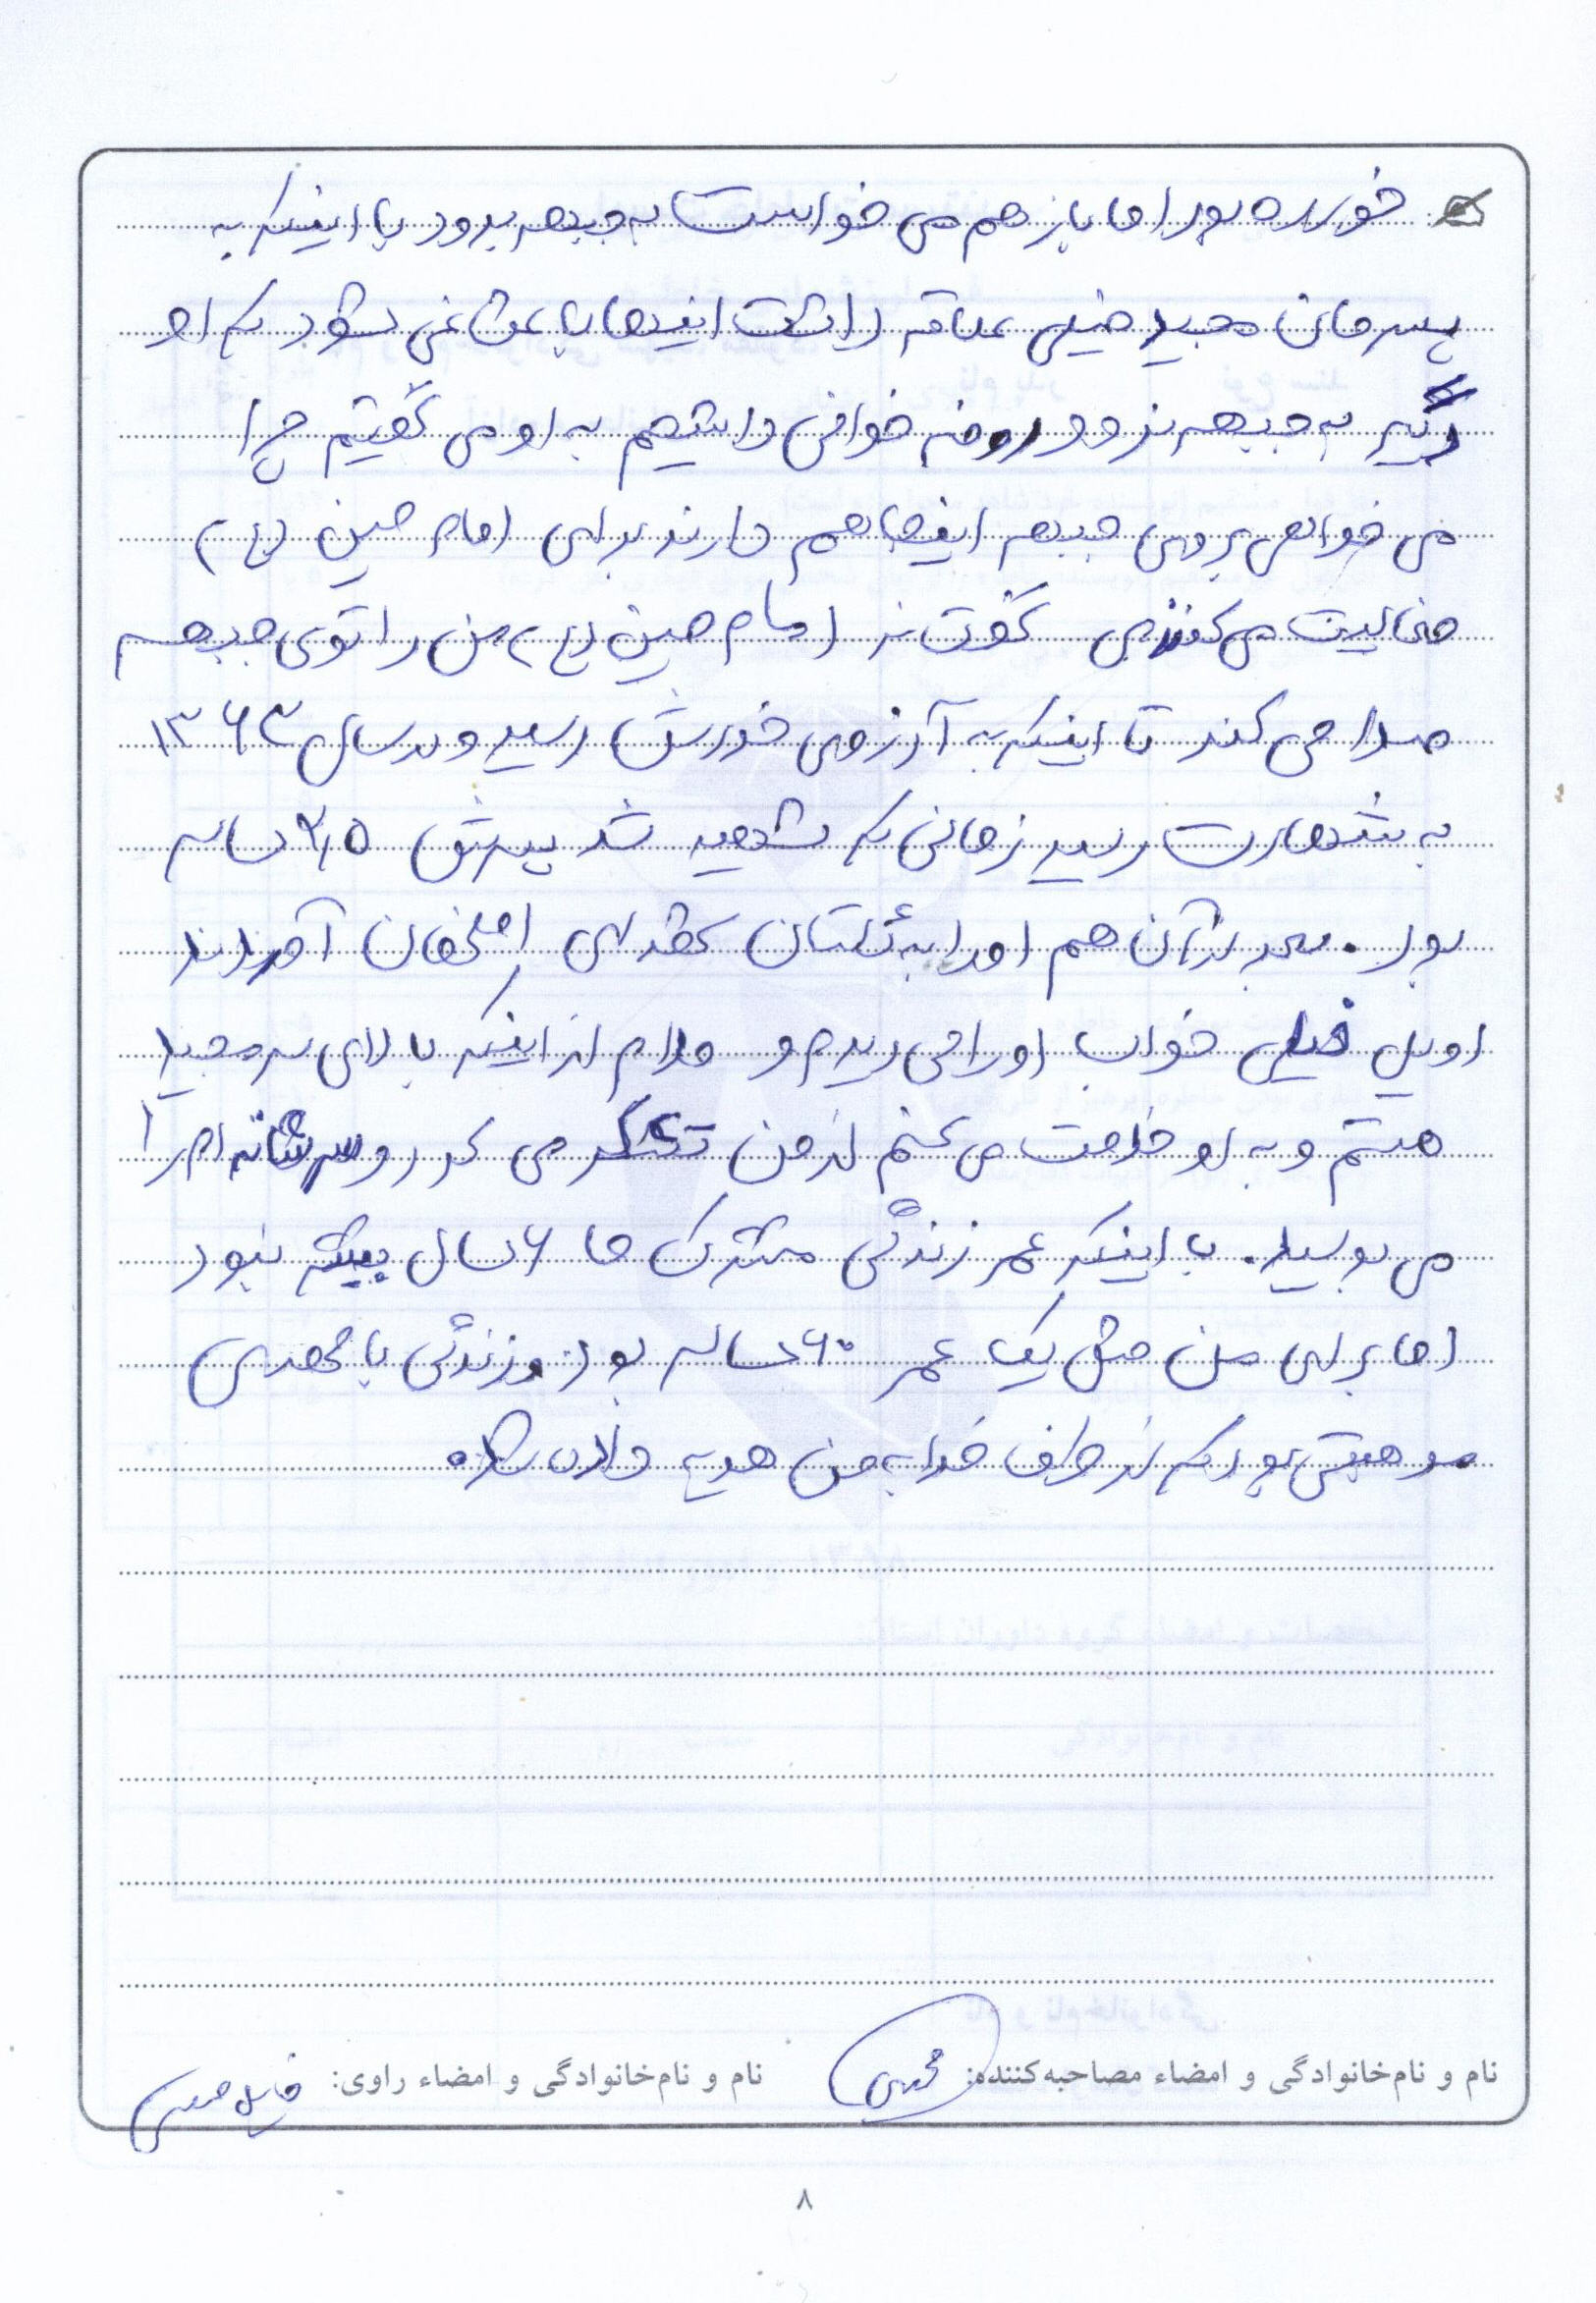 خورده بود اما باز هم می خواست به جبهه برود با اینکه به
پسرمان مجید خیلی علاقه داشت اینها باعث نمی شود که او
دیگر به جبهه نرود و روضه خوانی داشتیم به او می گفتیم چرا
می خواهی بروی جبهه اینجا هم دارند برای امام حسین (ع)
فعالیت می کنند گفت نه امام حسین (ع) من را توی جبهه
صدا می کند تا اینکه به آرزوی خودش رسید و در سال ۱۳۶۳
به شهادت رسید زمانی که شهید شد پسرش ۲/۵ ساله
بود. بعد از آن هم او را به گلستان شهدای اصفهان آوردند
اوایل خیلی خواب او را می دیدم و مدام از اینکه بالای سر مجید
هستم و به او خدمت می کنم از من تشکر می کرد و سر شانه ام را
می بوسید. با اینکه عمر زندگی مشترک ما ۶ سال بیشتر نبود
اما برای من مثل یک عمر ۶۰ ساله بود و زندگی با مهدی
موهبتی بود که از طرف خدا به من هدیه داده شده
نام و نام‌خانوادگی و امضاء مصاحبه‌کننده: نام و نام‌خانوادگی و امضاء راوی:
۸